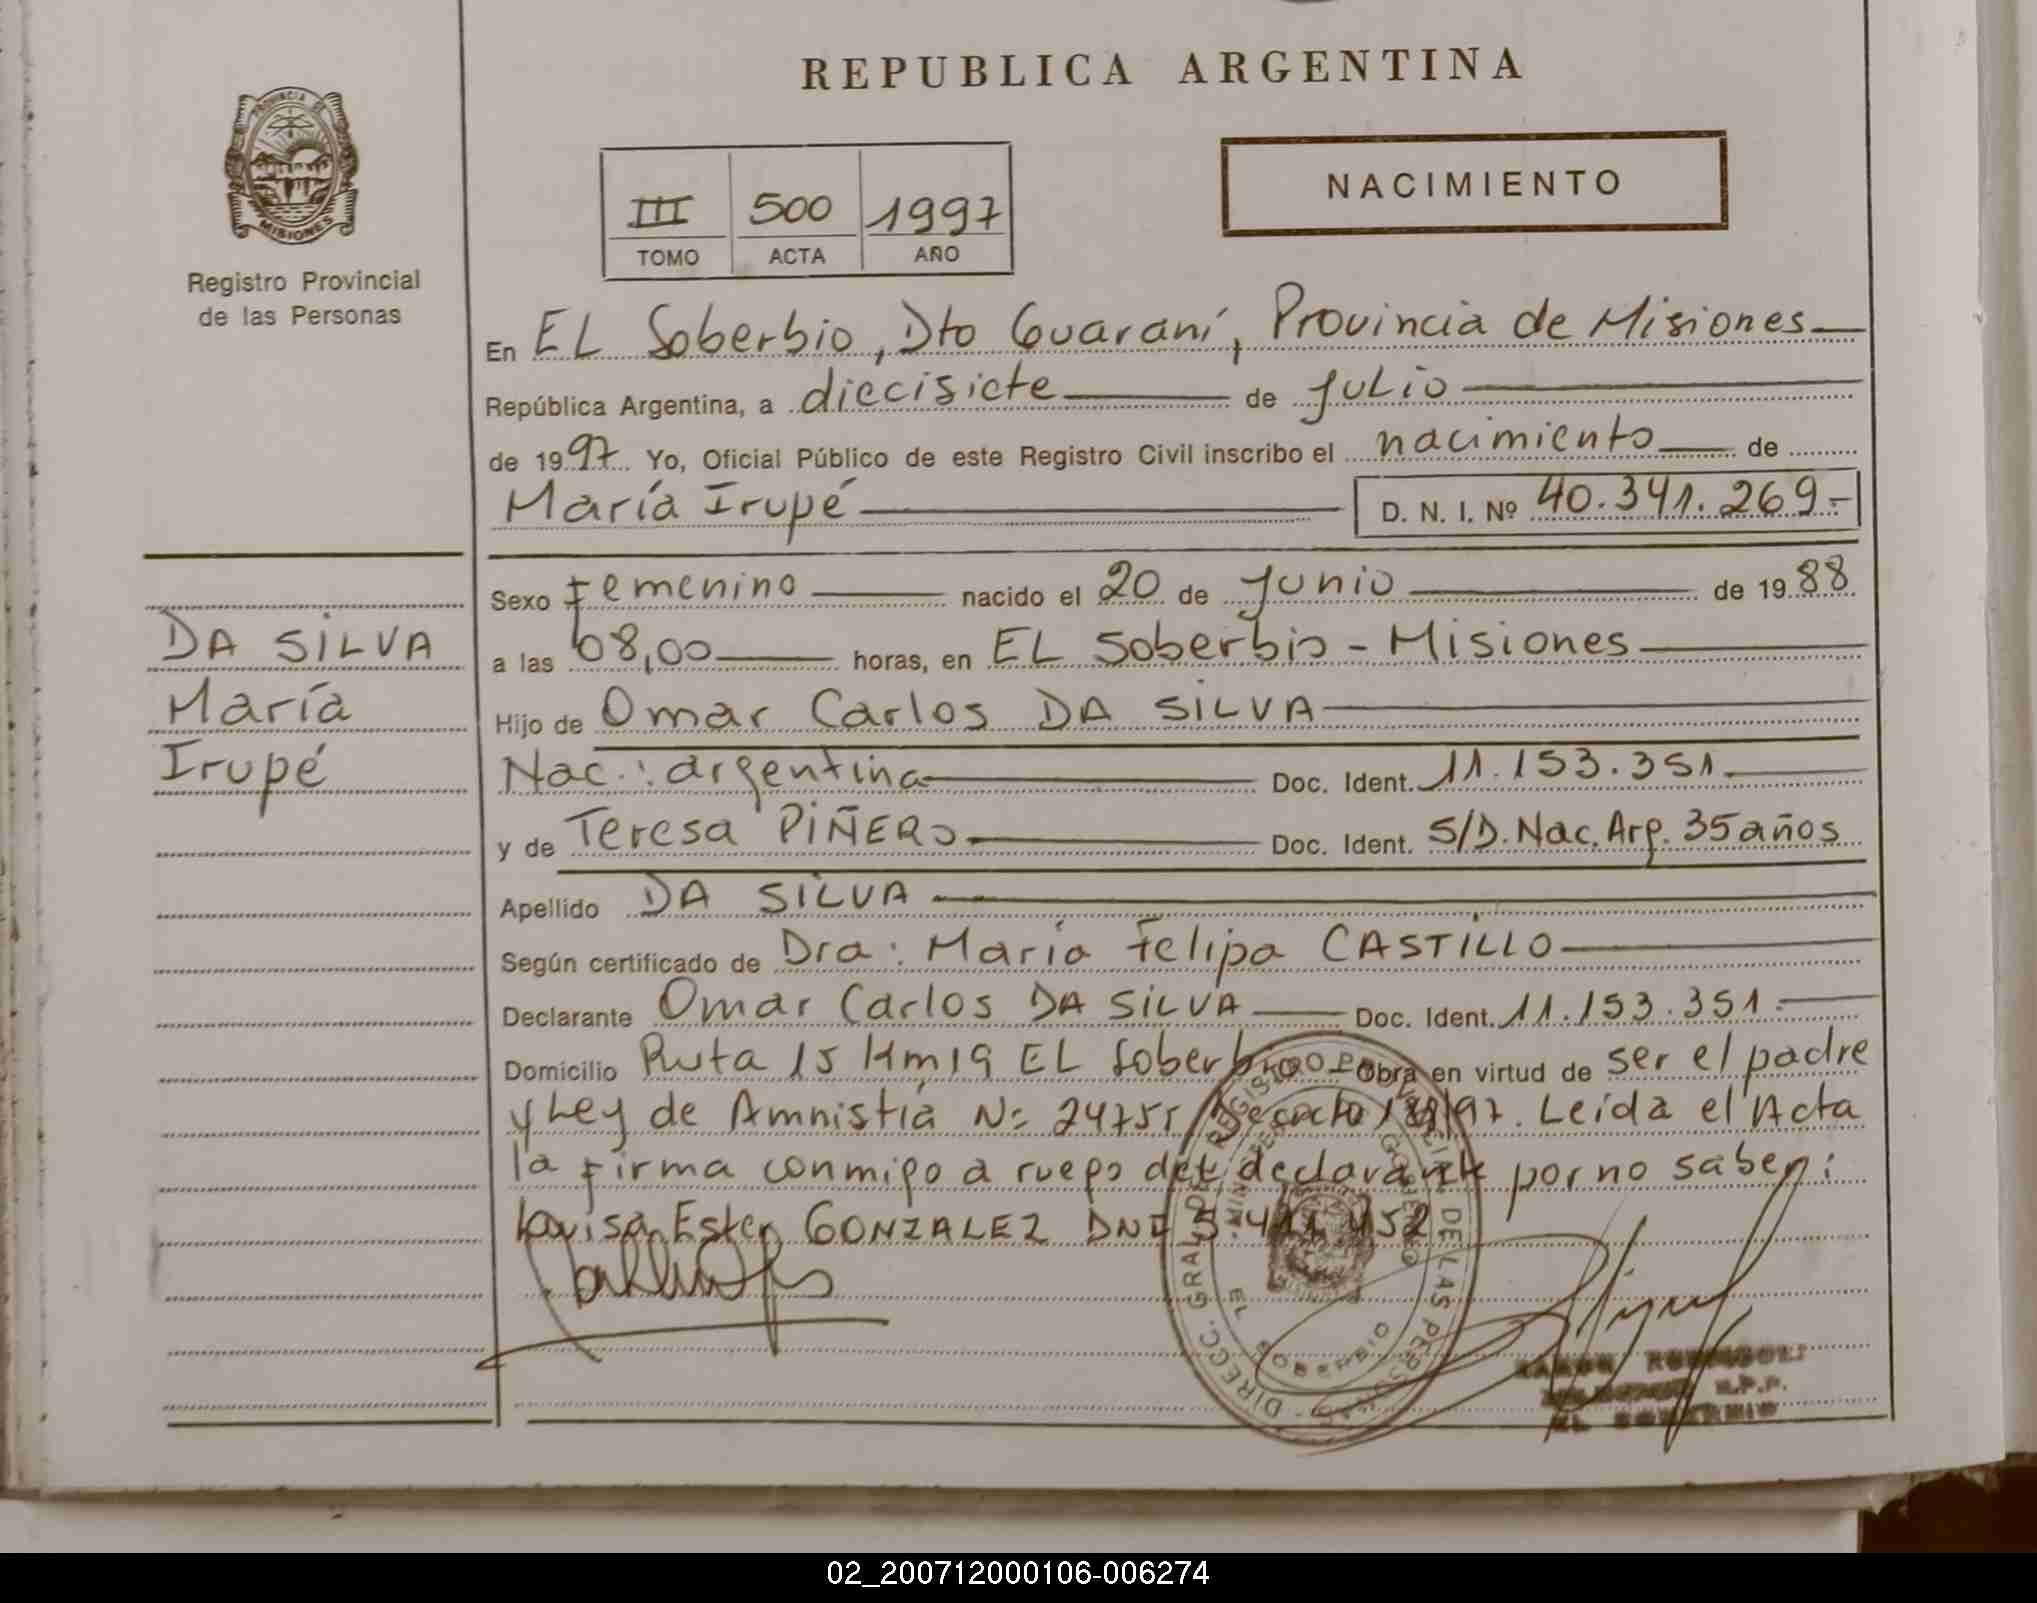 REPUBLICA ARGENTINA
PROVINCIA DE
MISIONES
Registro Provincial
de las Personas
III 500 1997
TOMO ACTA AÑO
NACIMIENTO
En EL Soberbio, Dto Guaraní, Provincia de Misiones
República Argentina, a diecisiete de julio
de 1997 Yo, Oficial Público de este Registro Civil inscribo el nacimiento de
María Irupé D. N. I. Nº 40.341.269.-
Sexo Femenino nacido el 20 de junio de 1988
a las 08,00 horas, en EL Soberbio - Misiones
Hijo de Omar Carlos DA SILVA
Nac.: argentina Doc. Ident. 11.153.351.
y de Teresa PIÑERO Doc. Ident. S/D. Nac. Arg. 35 años
Apellido DA SILVA
Según certificado de Dra: María Felipa CASTILLO
Declarante Omar Carlos DA SILVA Doc. Ident. 11.153.351.
Domicilio Ruta 15 Km 19 EL Soberbio Obra en virtud de ser el padre
y Ley de Amnistía Nº 24755 Decreto /97. Leída el Acta
la firma conmigo a ruego del declarante por no saber:
Luisa Ester GONZALEZ DNI
DA SILVA
María
Irupé
DIRECC. GRAL. DE REGISTRO PROVINCIAL DE LAS PERSONAS
EL SOBERBIO
EL SOBERBIO
02_200712000106-006274